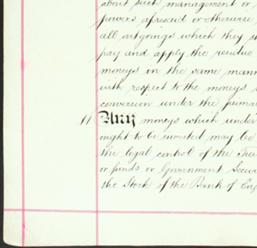 about such management or
powers aforesaid or otherwise
all outgoings which they
pay and apply the residue
moneys in the same mann
with respect to the moneys
conversion under the prima
11 Any moneys which under
ought to be invested may be
the legal control of the Trus
or funds or Government Secur
the Stock of the Bank of Eng